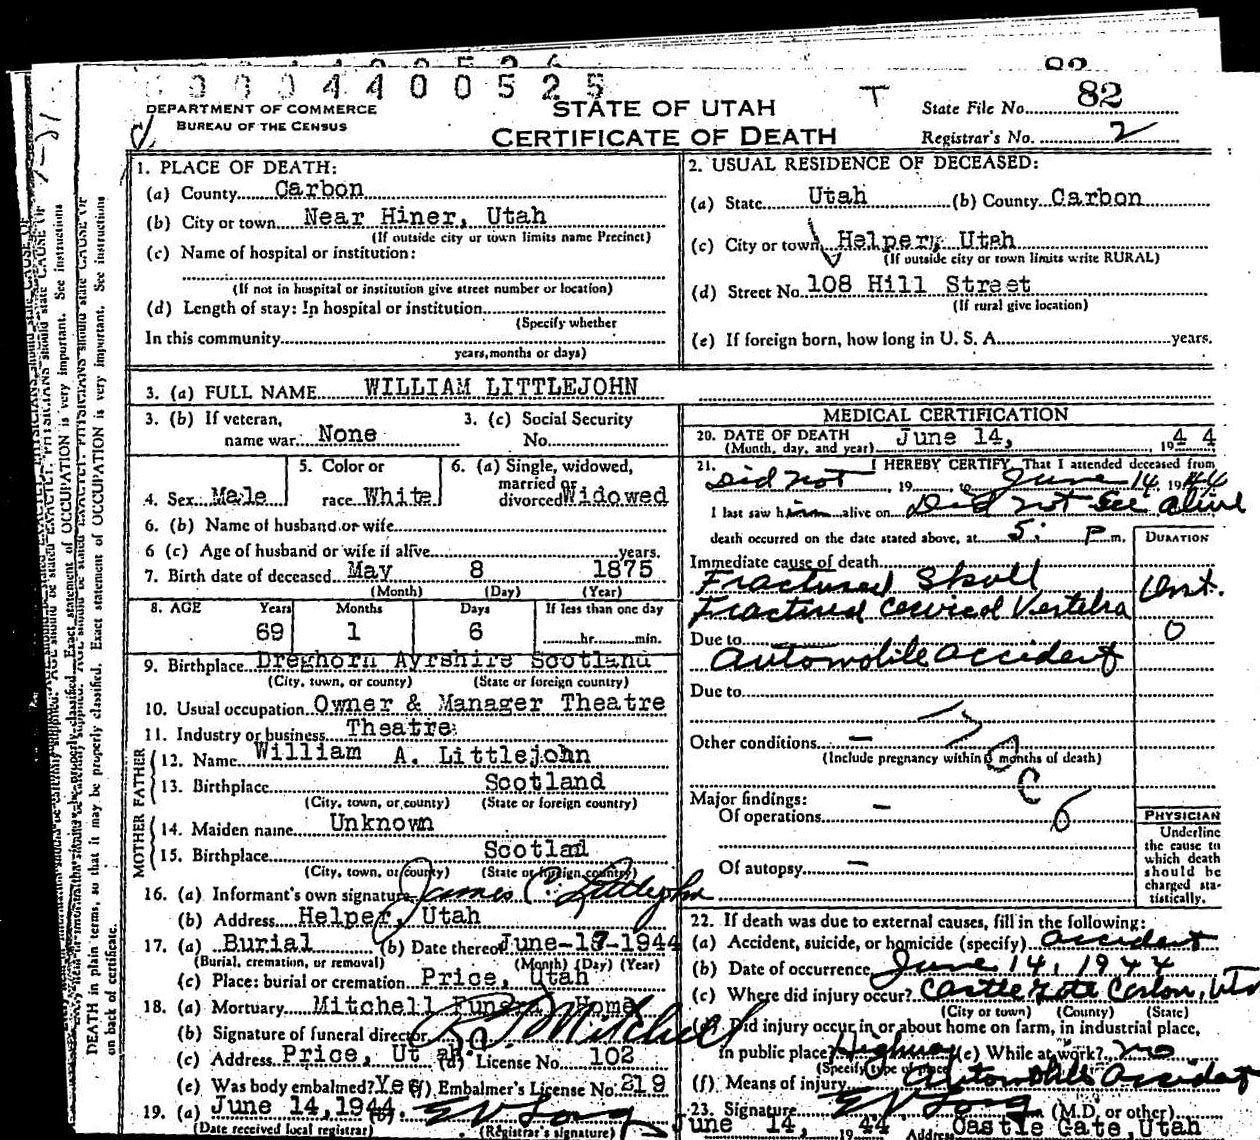 0 0 0 4 4 0 0 5 2 5
DEPARTMENT OF COMMERCE
BUREAU OF THE CENSUS
STATE OF UTAH
CERTIFICATE OF DEATH
T
State File No. 82
Registrar's No. 2
1. PLACE OF DEATH:
(a) County Carbon
(b) City or town Near Hiner, Utah
(If outside city or town limits name Precinct)
(c) Name of hospital or institution:
(If not in hospital or institution give street number or location)
(d) Length of stay: In hospital or institution
(Specify whether
In this community
years, months or days)
2. USUAL RESIDENCE OF DECEASED:
(a) State Utah (b) County Carbon
(c) City or town Helper, Utah
(If outside city or town limits write RURAL)
(d) Street No. 108 Hill Street
(If rural give location)
(e) If foreign born, how long in U. S. A. years.
3. (a) FULL NAME WILLIAM LITTLEJOHN
3. (b) If veteran, name war None
3. (c) Social Security No.
4. Sex Male
5. Color or race White
6. (a) Single, widowed, married or divorced Widowed
6. (b) Name of husband or wife
6 (c) Age of husband or wife if alive years.
7. Birth date of deceased May 8 1875
(Month) (Day) (Year)
8. AGE Years Months Days If less than one day
69 1 6 hr. min.
9. Birthplace Dreghorn Ayrshire Scotland
(City, town, or county) (State or foreign country)
10. Usual occupation Owner & Manager Theatre
11. Industry or business Theatre
FATHER
12. Name William A. Littlejohn
13. Birthplace Scotland
(City, town, or county) (State or foreign country)
MOTHER
14. Maiden name Unknown
15. Birthplace Scotlad
(City, town, or county) (State or foreign country)
16. (a) Informant's own signature James C. Littlejohn
(b) Address Helper, Utah
17. (a) Burial (b) Date thereof June-18-1944
(Burial, cremation, or removal) (Month) (Day) (Year)
(c) Place: burial or cremation Price, Utah
18. (a) Mortuary Mitchell Funeral Home
(b) Signature of funeral director Mitchell
(c) Address Price, Utah (d) License No. 102
(e) Was body embalmed? Yes (f) Embalmer's License No. 219
19. (a) June 14, 1944.
(Date received local registrar) (Registrar's signature)
MEDICAL CERTIFICATION
20. DATE OF DEATH June 14, 1944
(Month, day, and year)
21. I HEREBY CERTIFY, That I attended deceased from
Did not, 19 , to June 14, 1944
I last saw him alive on Did not see alive
death occurred on the date stated above, at 5: P m.
DURATION
Immediate cause of death
Fractured Skull
Fractured Cervical Vertebra
Inst.
Due to 0
Automobile accident
Due to
Other conditions –
(Include pregnancy within 3 months of death)
Major findings:
Of operations –
Of autopsy –
PHYSICIAN
Underline
the cause to
which death
should be
charged sta-
tistically.
22. If death was due to external causes, fill in the following:
(a) Accident, suicide, or homicide (specify) accident
(b) Date of occurrence June 14, 1944
(c) Where did injury occur? Castle Gate Carbon, Utah
(City or town) (County) (State)
Did injury occur in or about home on farm, in industrial place,
in public place? Highway (e) While at work? no
(Specify type of place)
(f). Means of injury Automobile accident
23. Signature (M.D. or other)
June 14, 1944 Address Castle Gate, Utah
DEATH in plain terms, so that it may be properly classified. Exact statement of OCCUPATION is very important. See instructions
on back of certificate.